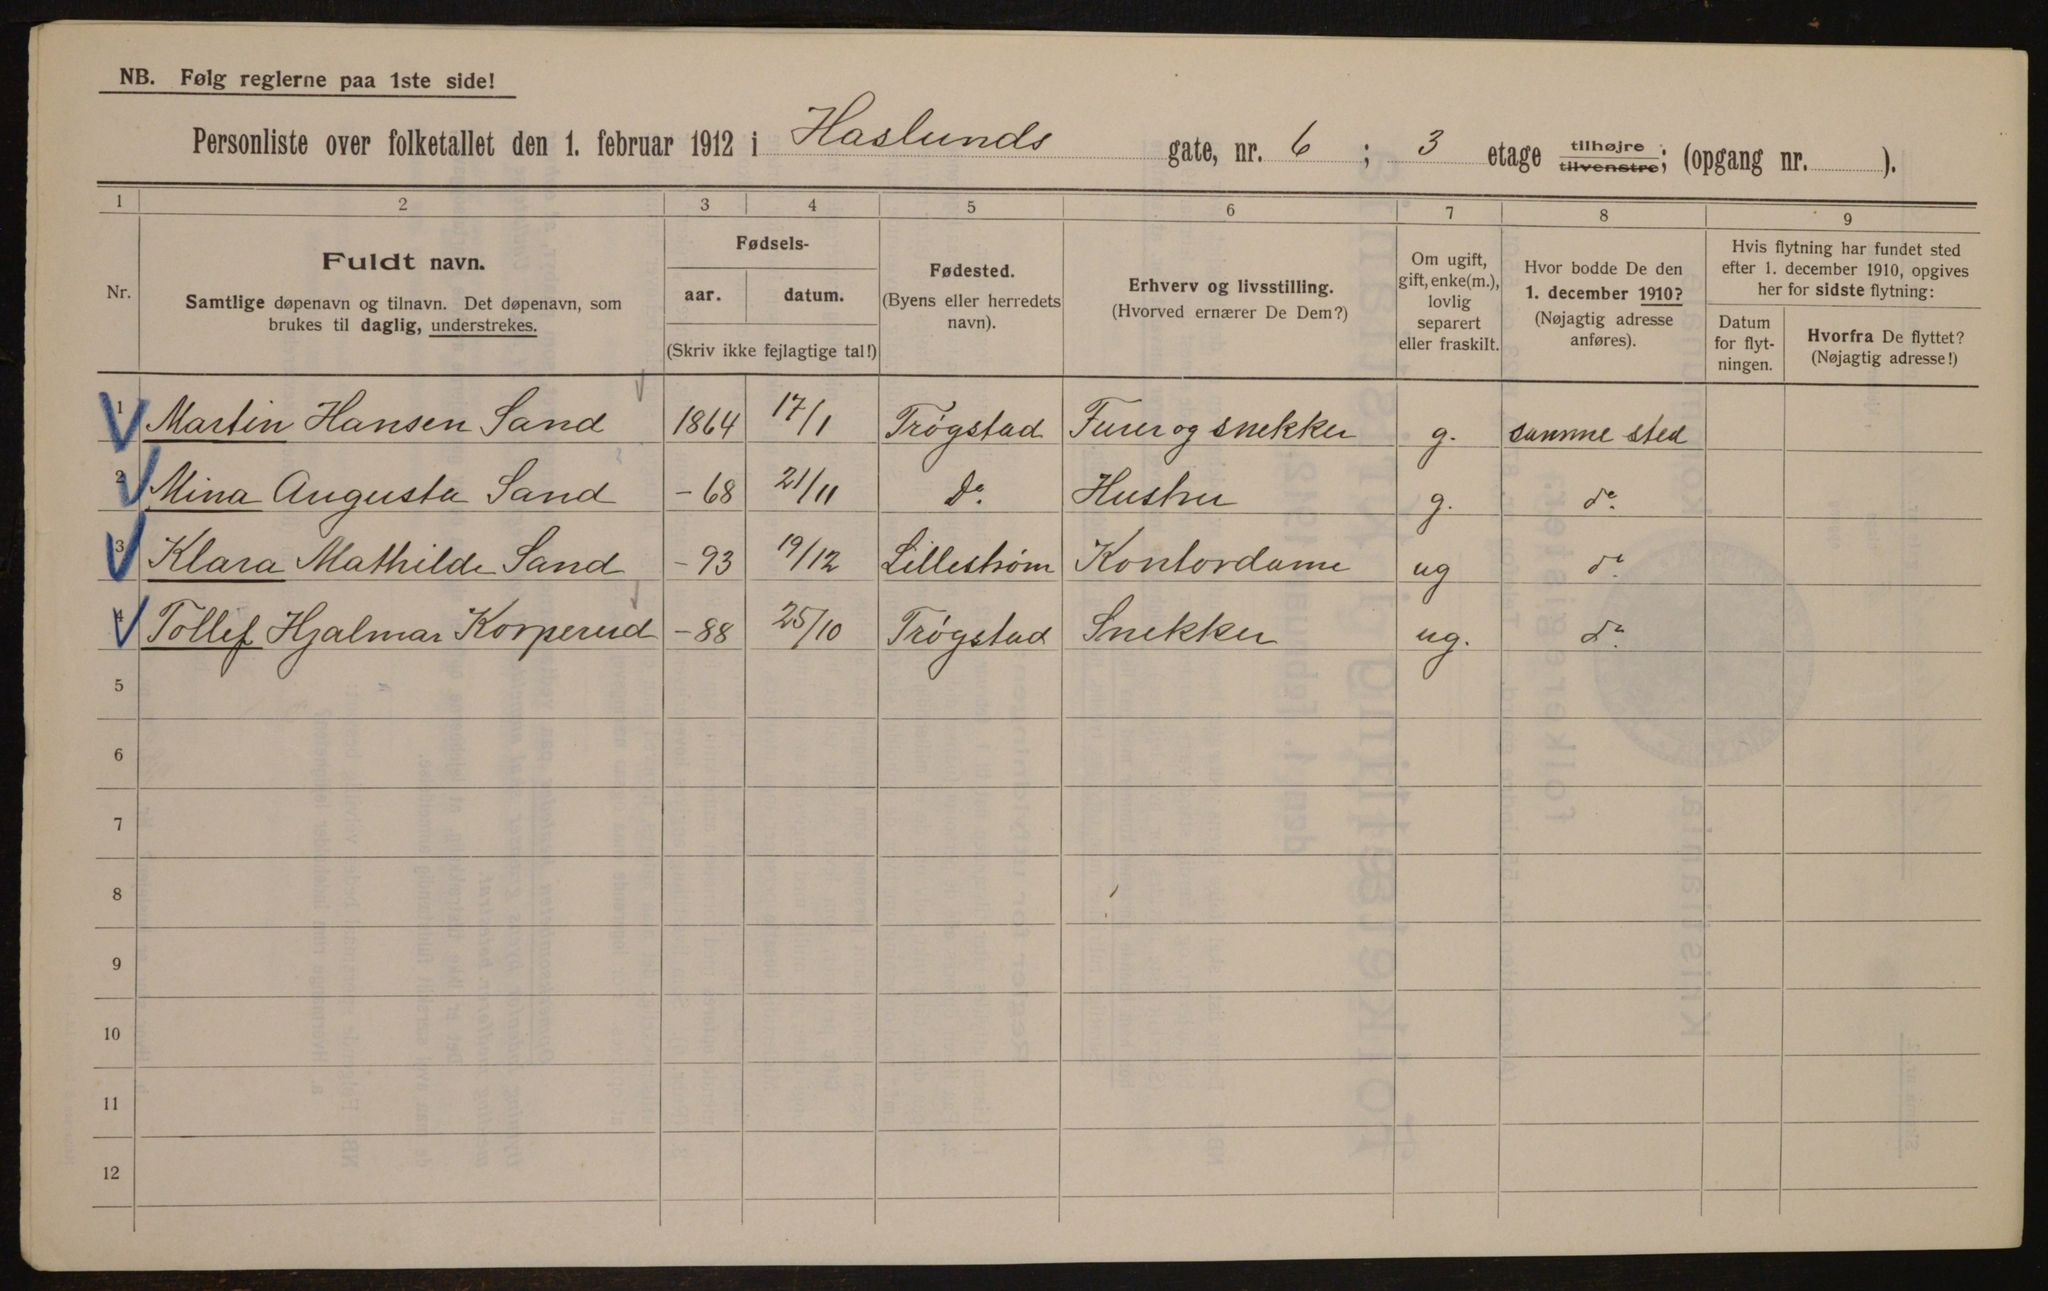 NB. Følg reglerne paa 1ste side!
Personliste over folketallet den 1. februar 1912 i Haslunds gate, nr. 6 ; 3 etage tilhøjre tilvenstre; (opgang nr. ).
1 2 3 4 5 6 7 8 9
Nr.
Fuldt navn.
Samtlige døpenavn og tilnavn. Det døpenavn, som
brukes til daglig, understrekes.
Fødsels-
aar. datum.
(Skriv ikke fejlagtige tal!)
Fødested.
(Byens eller herredets
navn).
Erhverv og livsstilling.
(Hvorved ernærer De Dem?)
Om ugift,
gift, enke(m.),
lovlig
separert
eller fraskilt.
Hvor bodde De den
1. december 1910?
(Nøjagtig adresse
anføres).
Hvis flytning har fundet sted
efter 1. december 1910, opgives
her for sidste flytning:
Datum
for flyt-
ningen.
Hvorfra De flyttet?
(Nøjagtig adresse!)
1 Martin Hansen Sand 1864 17/1 Trøgstad og snekker g. samme sted
2 Mina Augusta Sand - 68 21/11 Do. Hustru g. do.
3 Klara Mathilde Sand - 93 19/12 Lillestrøm Kontordame ug do.
4 Tollef Hjalmar Korperud - 88 25/10 Trøgstad Snekker ug. do.
5
6
7
8
9
10
11
12